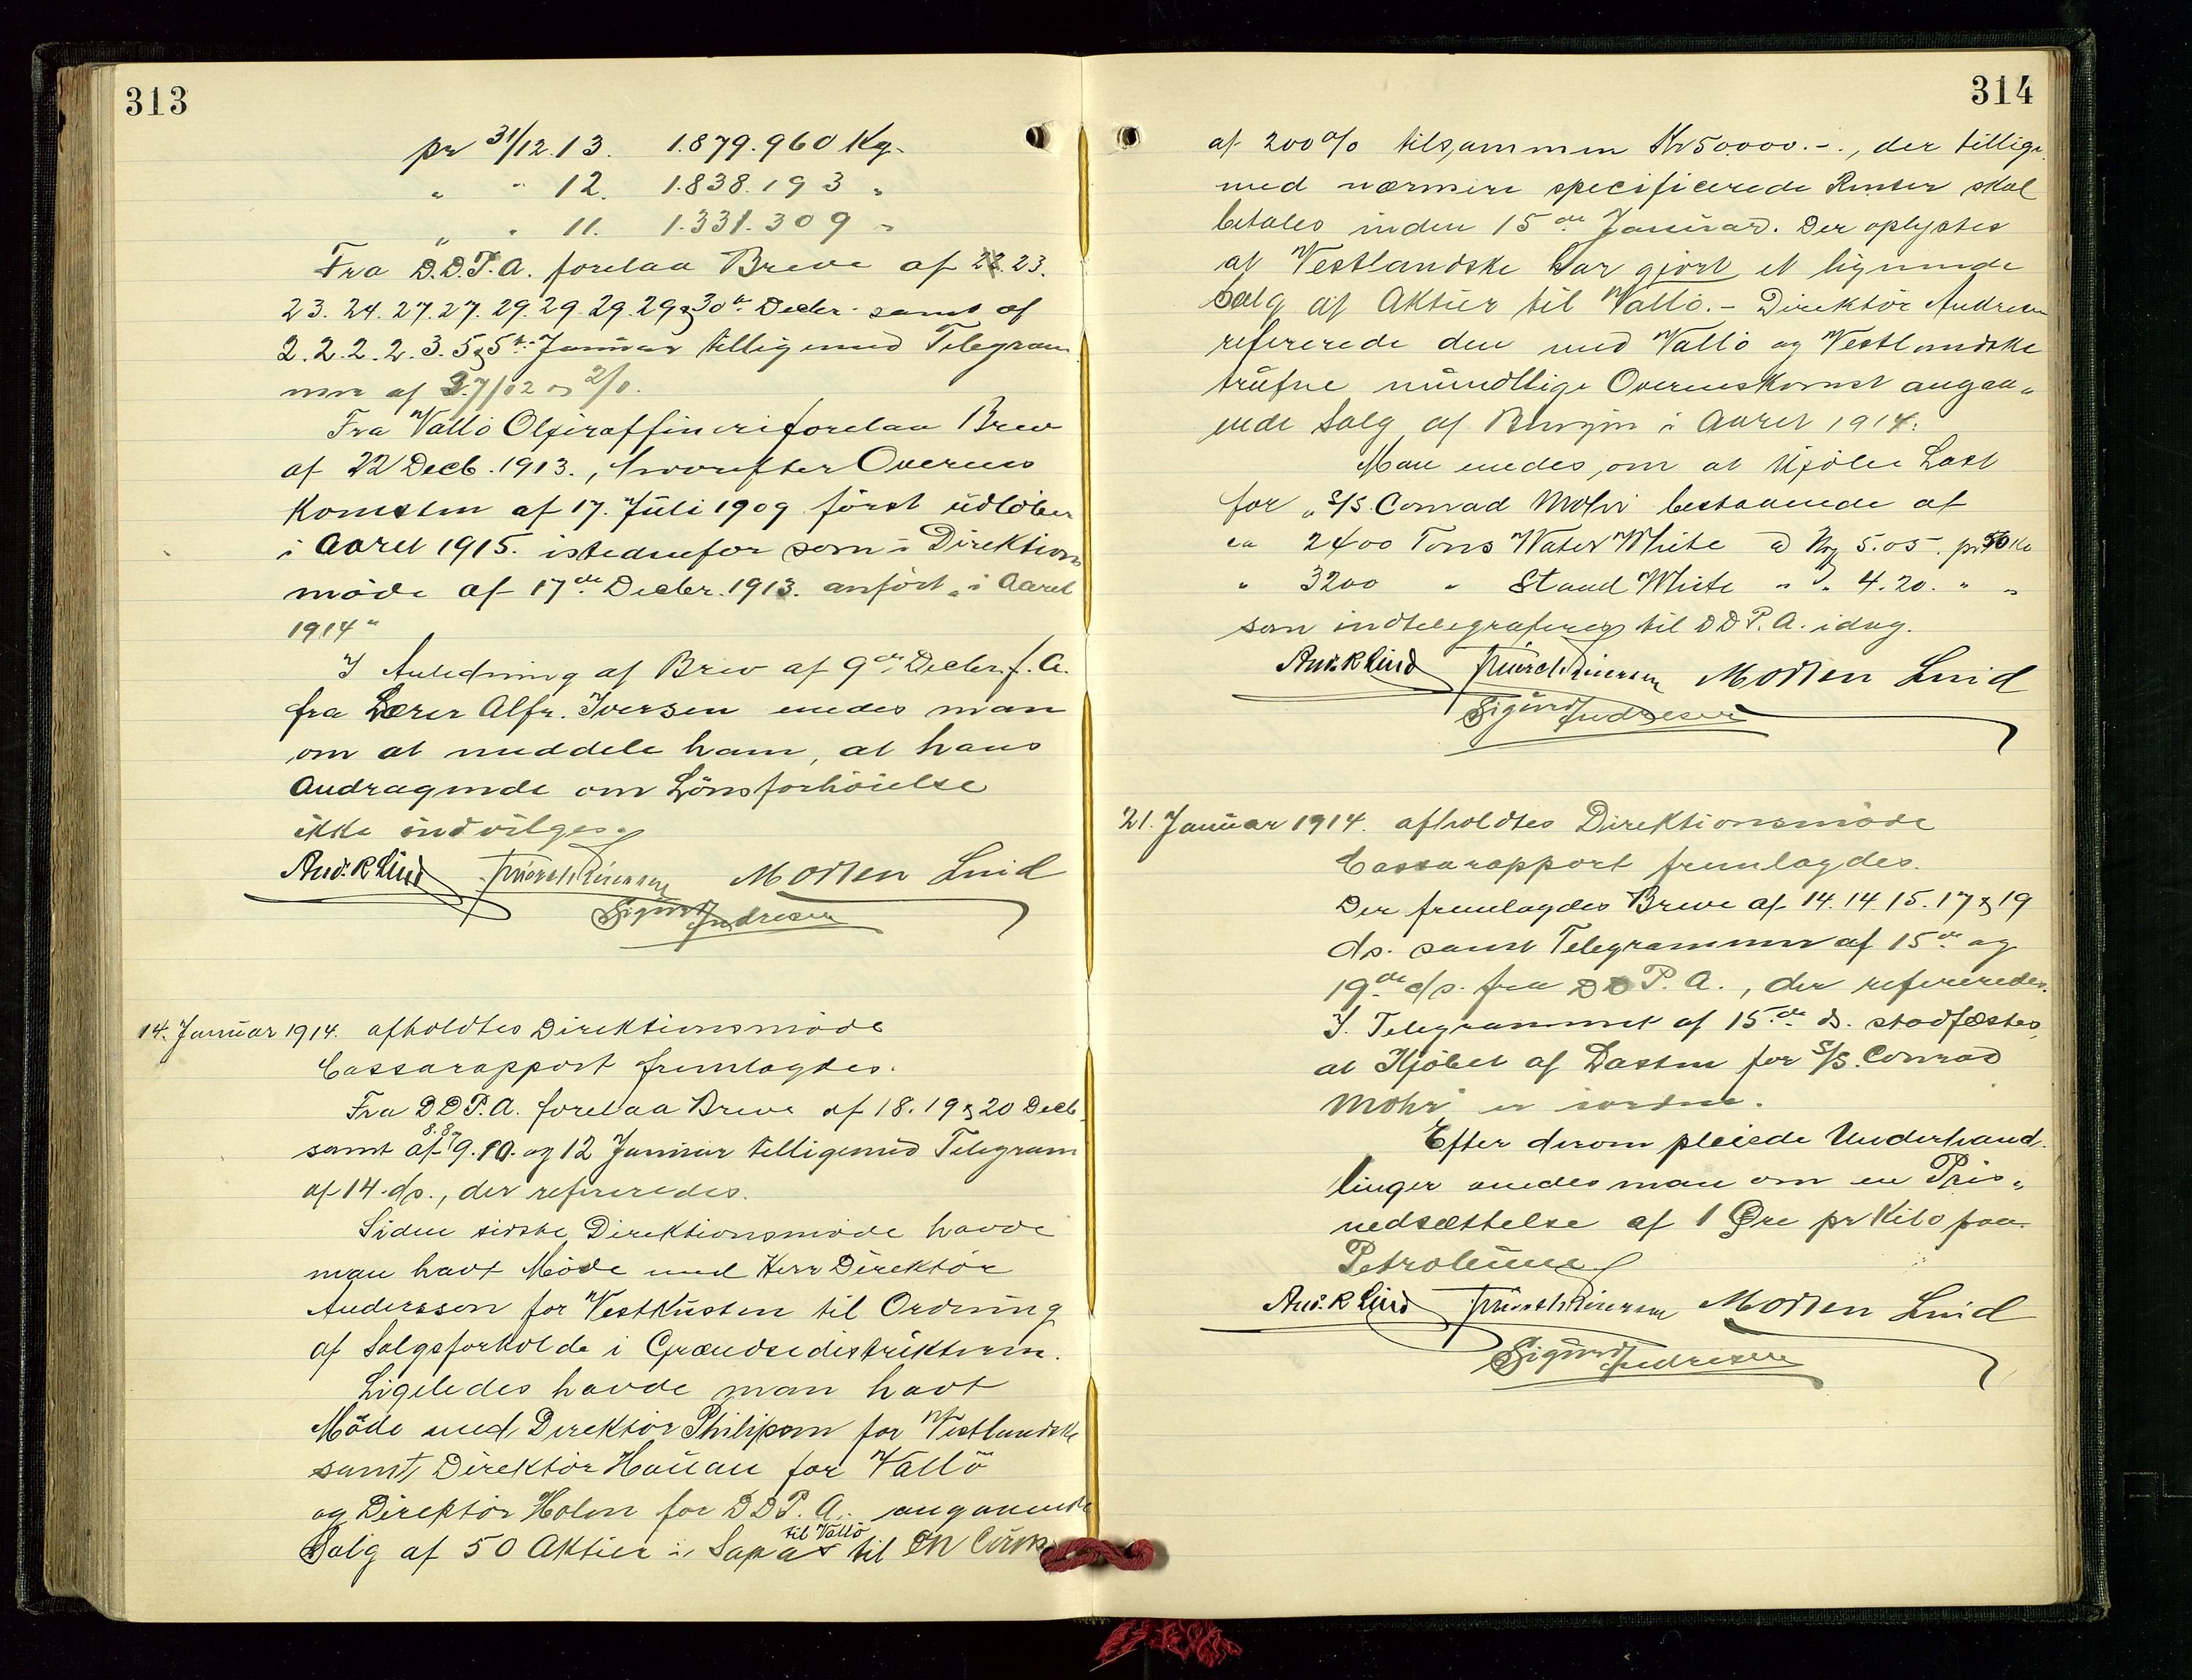 313
pr 31/12.13. 1.879.960 Kg.
" " 12. 1.838.193 "
" " 11. 1.331.309 "
Fra D.D.P.A. forelaa Breve af 23.
23. 24. 27. 27. 29. 29. 29. 29 & 30te Decbr. samt af
2. 2. 2. 2. 3. 5 & 5te Januar tilligemed Telegram
mer af 27/12 og 2/1.
Fra Vallö Oljeraffineri forelaa Brev
af 22 Decb. 1913., hvorefter Overens
Komsten af 17. Juli 1909 først udløber
i Aaret 1915. istedenfor som i Direktions
møde af 17de Decbr. 1913. anført "i Aaret
1914"
I Anledning af Brev af 9de Decbr. f. A.
fra Lærer Alfr. Iversen enedes man
om at meddele ham, at hans
Andragende om Lönsforhöielse
ikke indvilges.
Andr. R Lind Morten Lind
Sigurd Andresen
14. Januar 1914. afholdtes Direktionsmøde
Cassarapport fremlagdes.
Fra D D P. A. forelaa Breve af 18. 19 & 20 Decb.
samt af 8. 8. 9. 10. og 12 Januar tilligemed Telegram
af 14. ds., der refereredes.
Siden sidste Direktionsmøde havde
man havt Møde med Herr Direktör
Andersson for Vestkusten til Ordning
af Salgsforholde i Grændsedistrikterne.
Ligeledes havde man havt
Møde med Direktör Philipson for Vestlandske
samt Direktör Hauan for Vallö
og Direktör Holm for D D P. A. angaaende
Salg af 50 Aktier i Sapa til Vallö til en Curs
314
af 200 % tilsammen Kr 50.000.-., der tillige
med nærmere specificerede Renter skal
betales inden 15de Januar. Der oplystes
at Vestlandske har gjort et lignende
Salg af Aktier til Vallö. - Direktör Andresen
refererede den med Vallö og Vestlandske
trufne mundtlige Overenskomst angaa"
ende Salg af Benzin i Aaret 1914.
Man enedes om at Kjöbe Last
for "S/S. Conrad Mohr" bestaaende af
ca 2400 Tons Water White a Mrk 5.05. pr 50 Ko
" 3200 " Stand White " " 4.20. " "
som indtelegraferes til D D P. A. idag.
Andr. R Lind Morten Lind
Sigurd Andresen
21. Januar 1914. afholdtes Direktionsmøde
Cassarapport fremlagdes.
Der fremlagdes Breve af 14. 14. 15. 17 & 19
ds. samt Telegrammer af 15de og
19de ds. fra D D P. A., der refereredes.
I Telegrammet af 15de ds. stadfæstes,
at Kjöbet af Lasten for S/S. "Conrad
Mohr" er iorden.
Efter derom pleiede Underhand
linger enedes man om en Pris"
nedsættelse af 1 Øre pr Kilo paa
Petroleum
Andr. R Lind Morten Lind
Sigurd Andresen